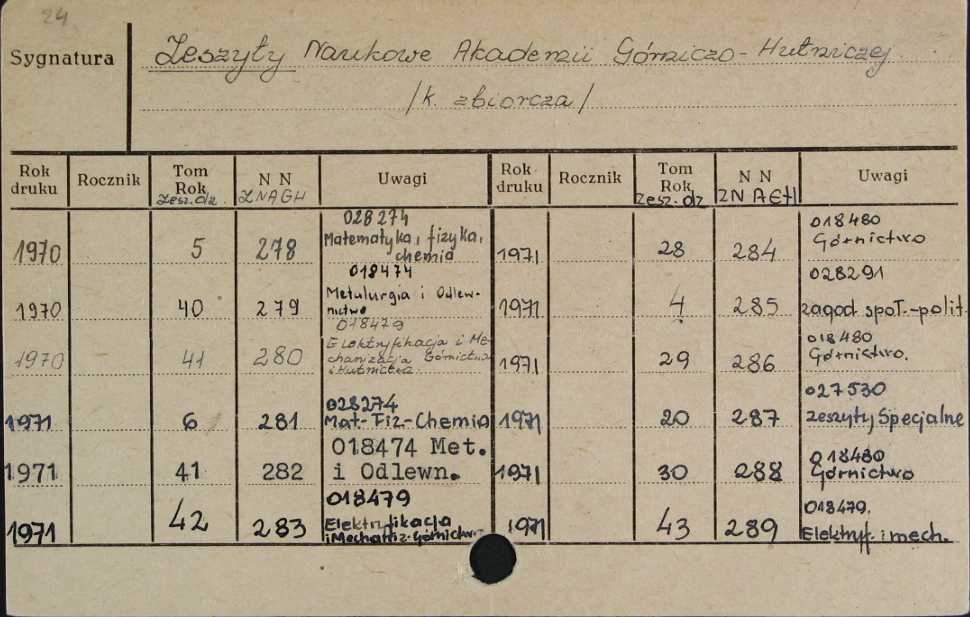 24
Sygnatura
Zeszyły Naukowe Akademii Górniczo-Hutniczej
/k. zbiorcza/
Rok druku Rocznik Tom Rok Zesz. dz. N N ZNAGH Uwagi Rok druku Rocznik Tom Rok Zesz. dz N N ZN AGH Uwagi
028274
1970 5 278 Matematyka, fizyka,
chemia
018474
1970 40 279 Metulurgia i Odlew-
nictwo
018479
1970 41 280 Elektryfikacja i Me-
chanizacja Górnictwa
i Hutnictwa.
028274
1971 6 281 Mat.-Fiz-Chemia
018474 Met.
1971 41 282 i Odlewn.
018479
1971 42 283 Elektryfikacja
i Mechaniz. Górnictw
018480
1971 28 284 Górnictwo
028291
1971 4 285 zagad. społ.-polit.
018480
1971 29 286 Górnictwo.
027530
1971 20 287 Zeszyty Specjalne
018480
1971 30 288 Górnictwo
018479.
1971 43 289 Elektryf. i mech.